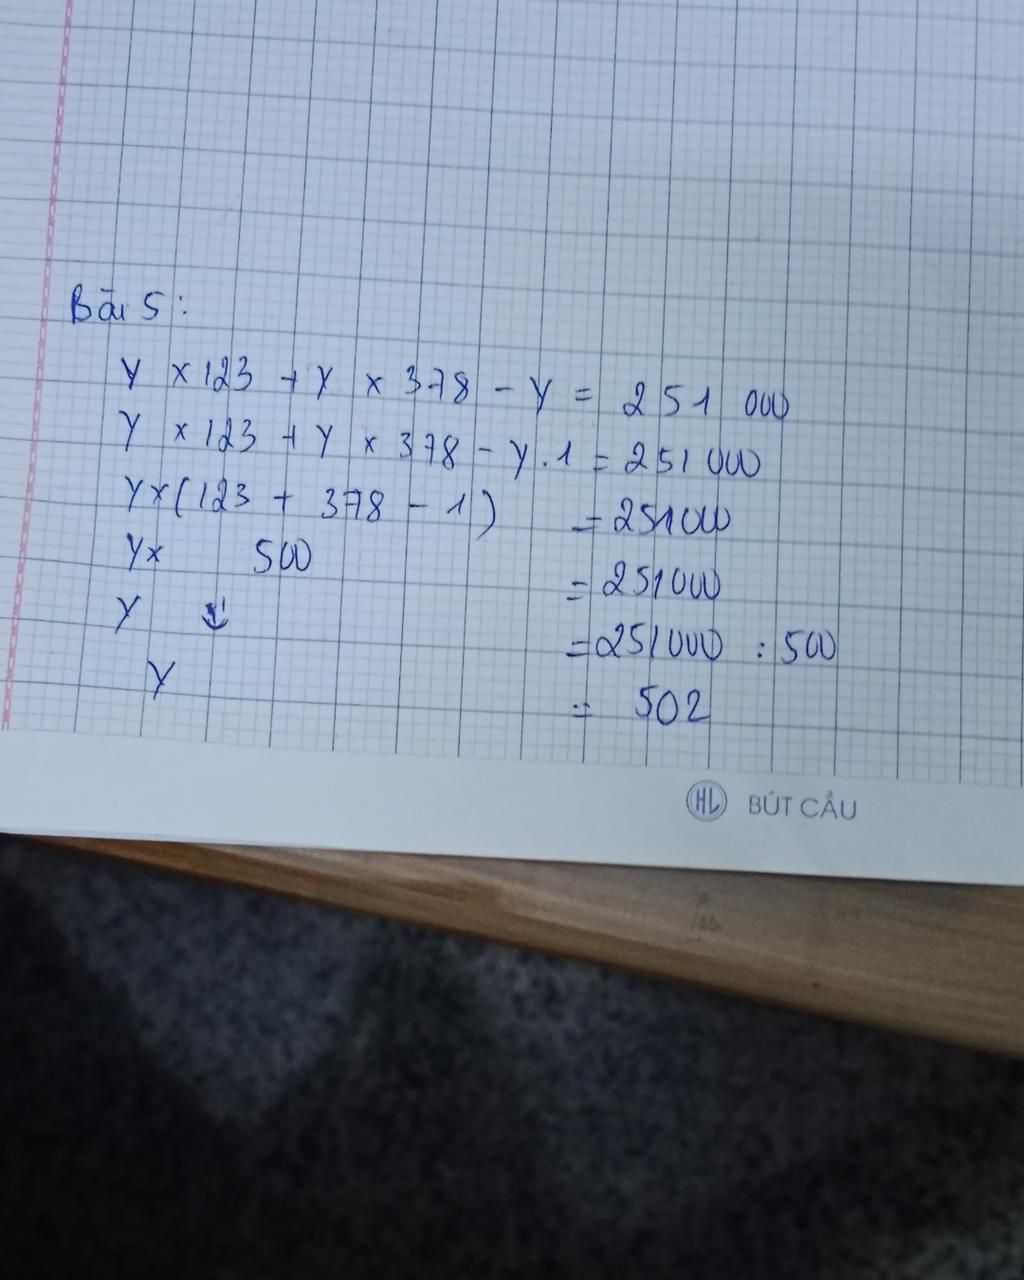 Bài 5:
y × 123 + y × 378 - y = 251 000
y × 123 + y × 378 - y . 1 = 251 000
y × (123 + 378 - 1) = 251000
y × 500 = 251000
y = 251000 : 500
y = 502
HL BÚT CẦU